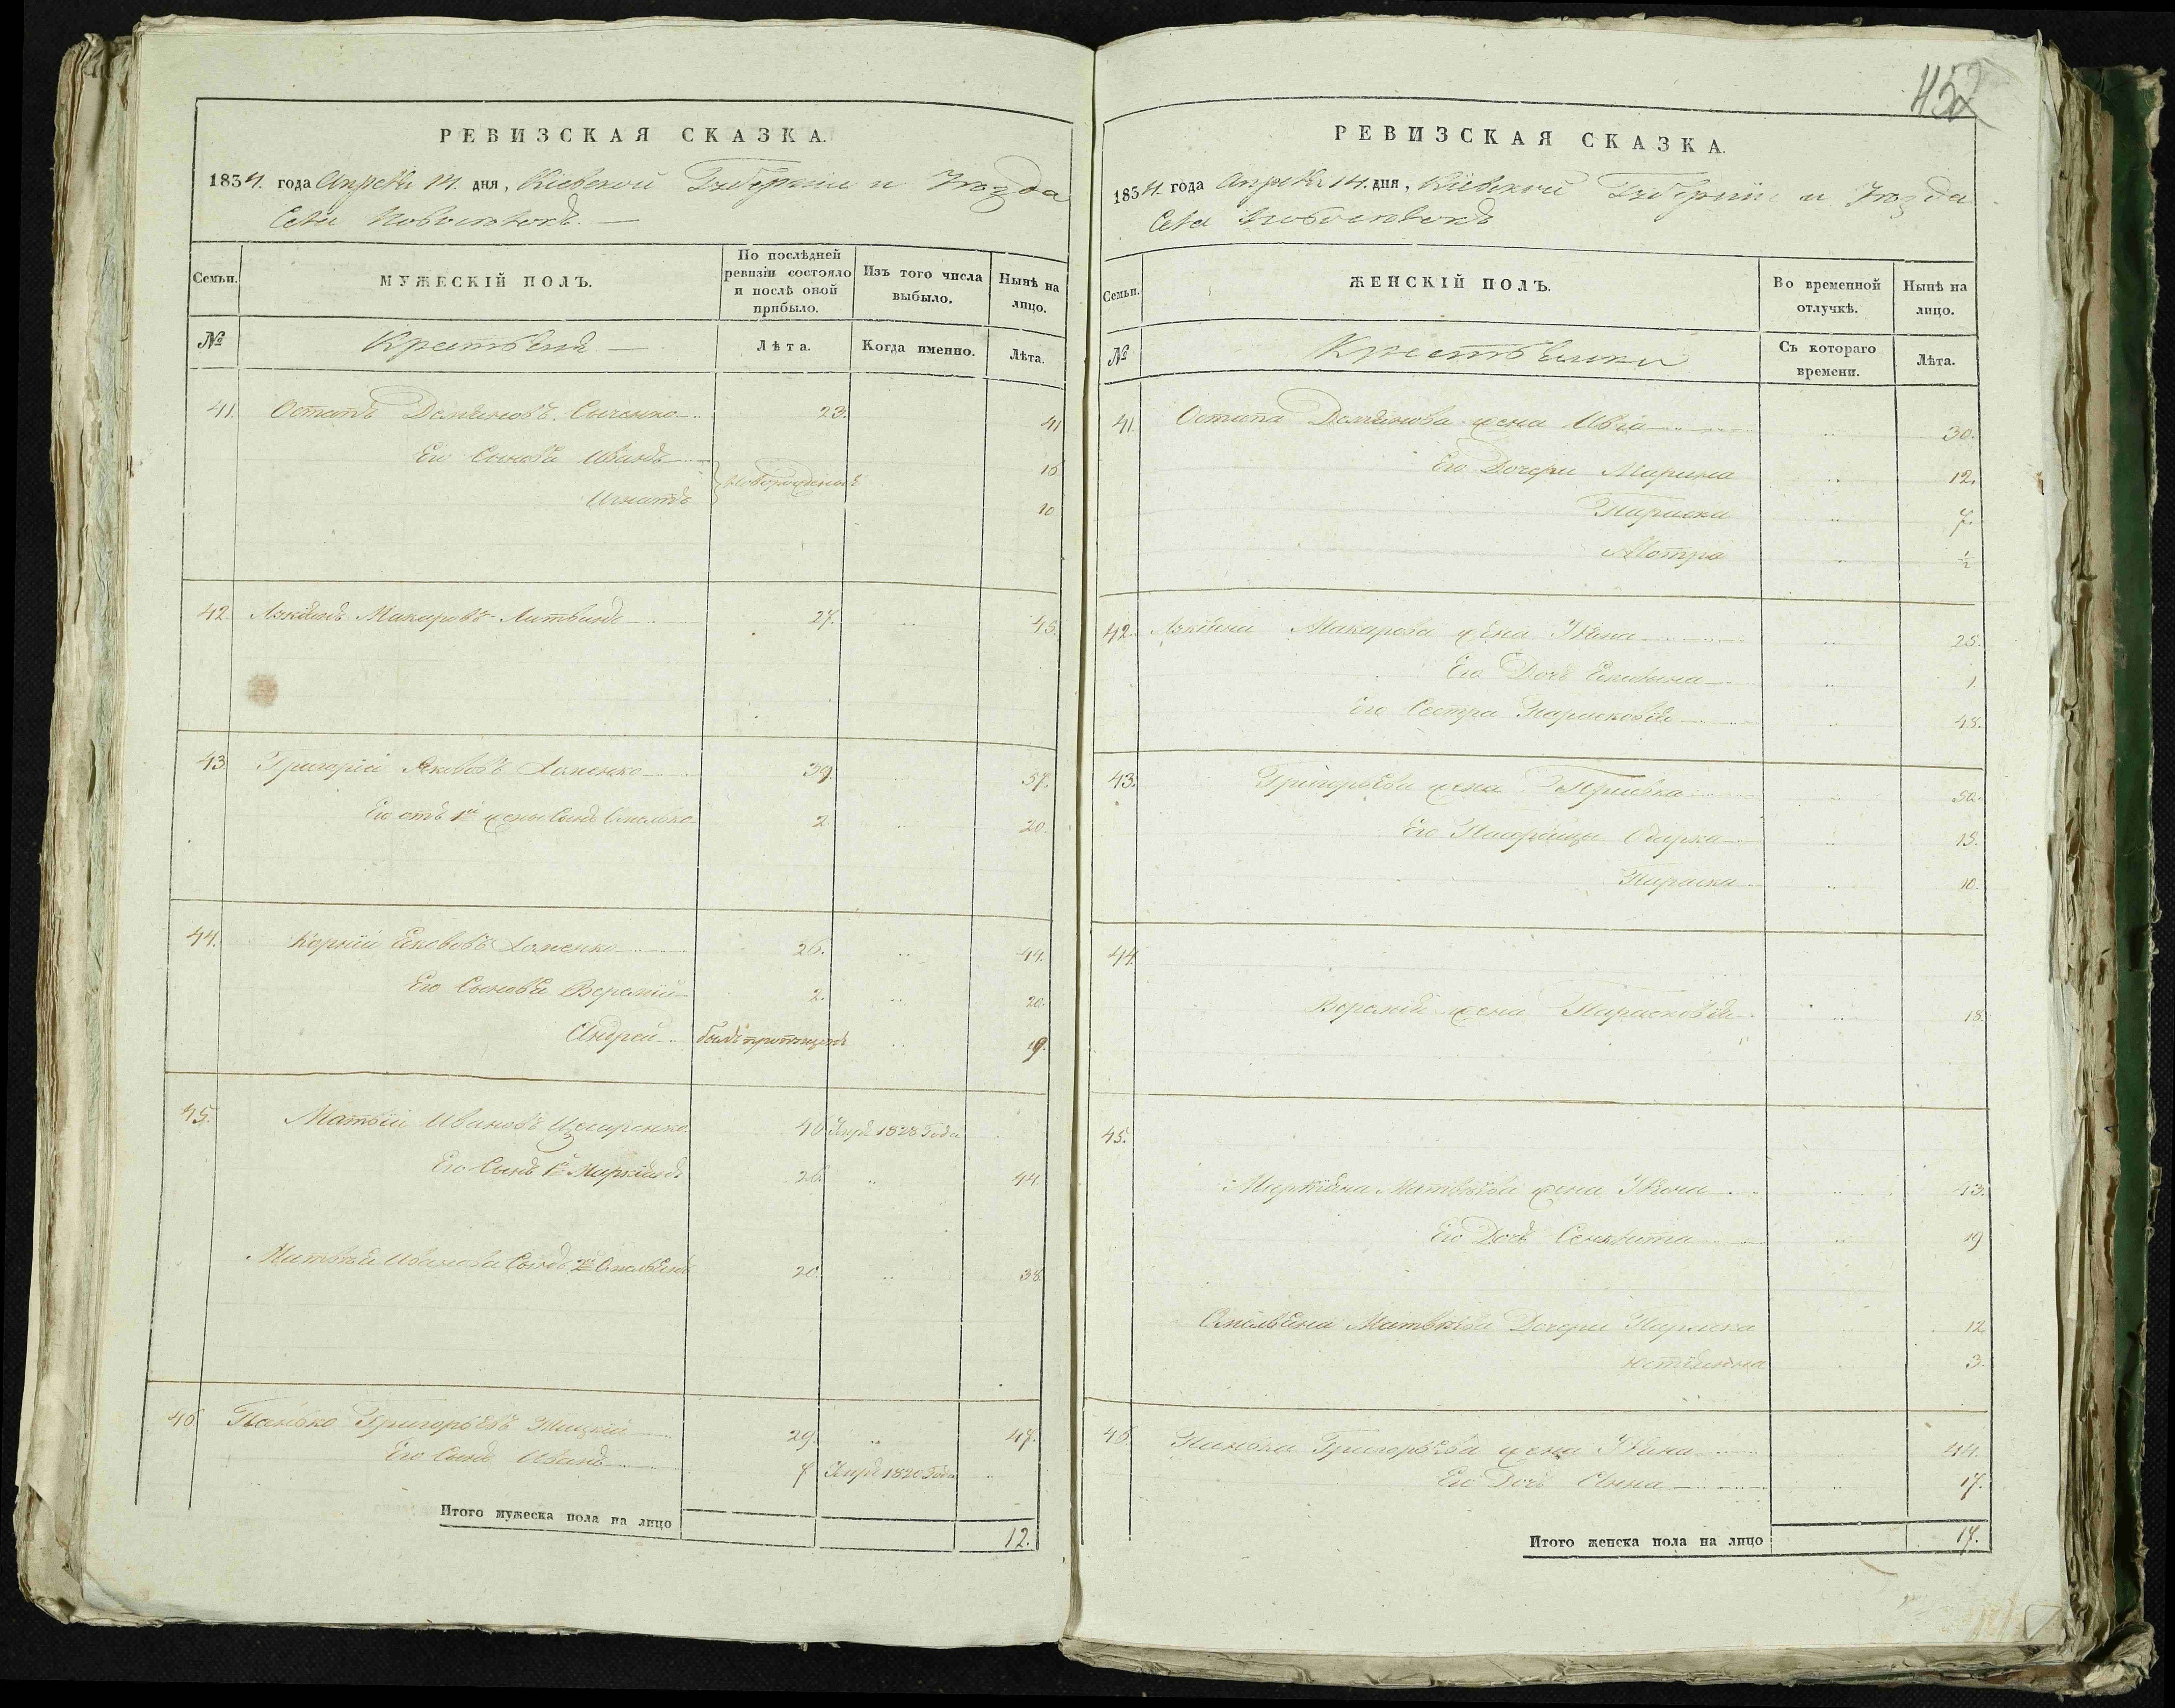 452
РЕВИЗСКАЯ СКАЗКА.
1834. года Апреля 14. дня, Кіевской Губерніи и Уезда
Села
Семьи.
МУЖЕСКІЙ ПОЛЪ.
По послѣдней ревизіи состояло и послѣ оной прибыло.
Изъ того числа выбыло.
Нынѣ на лицо.
№
Крестьяне
Лѣта.
Когда именно.
Лѣта.
41. Остапъ Демяновъ Сыченко 23. 41
Его Сыновья Иванъ 16
новорожденные
Игнатъ 10
42. Макаровъ Литвинъ 27. 45.
43. Григорій Яковлевъ Хоменко 39. 57.
Его отъ 1й жены Сынъ Омелько 2. 20.
44. Корній Хоменко 26. 44.
Его Сыновья Веремій 2. 20.
Андрей былъ пропущенъ 19.
45. Матвій Ивановъ 40. 1828 Года
Его Сынъ 1й 26. 44.
Матвѣя Иванова Сынъ 2й Омельянъ 20. 38.
46. Панько Григорьевъ 29. 47.
Его Сынъ Иванъ 7 1820 Года
Итого мужеска пола на лицо 12.
РЕВИЗСКАЯ СКАЗКА.
1834. года Апреля 14. дня, Кіевской Губерніи и Уезда
Села
Семьи.
ЖЕНСКІЙ ПОЛЪ.
Во временной отлучкѣ.
Нынѣ на лицо.
№
Крестьянки
Съ котораго времени.
Лѣта.
41. Остапа Демянова жена Ивга 30.
Его Дочери Марина 12.
Параска 7.
Мотря ½
42. Макарова жена Ульяна 25.
Его Дочь 1.
Его Сестра Парасковія 48.
43. Григорьева жена 50.
Его Падчерицы Одарка 15.
Параска 10.
44.
Веремія жена Парасковія 18.
45.
Матвѣева жена Ульяна 43.
Его Дочь 19
Омельяна Матвѣева Дочери Параска 12.
3.
46. Панька Григорьева жена Ульяна 44.
Его Дочь Анна 17.
Итого женска пола на лицо 17.